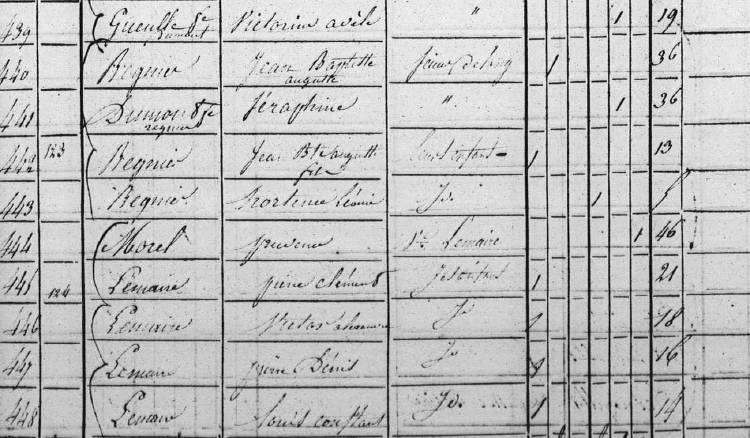 439 Gueulle fe Dumont Victorine adèle " 1 19
440 Regnier Jean Baptiste auguste 1 36
441 Dumont fe regnier Séraphine " 1 36
442 123 Regnier Jean Bte auguste fils leurs enfants 1 13
443 Regnier hortence Léonie Id. 1
444 Morel ve Lemaire 1 46
445 124 Lemaire pierre clément ses enfans 1 21
446 Lemaire Victor Id 1 18
447 Lemaire pierre Dénis Id 1 16
448 Lemaire Louis constant Id. 1 14